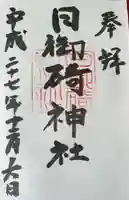 奉拝
日御碕神社
平成二十七年十二月六日